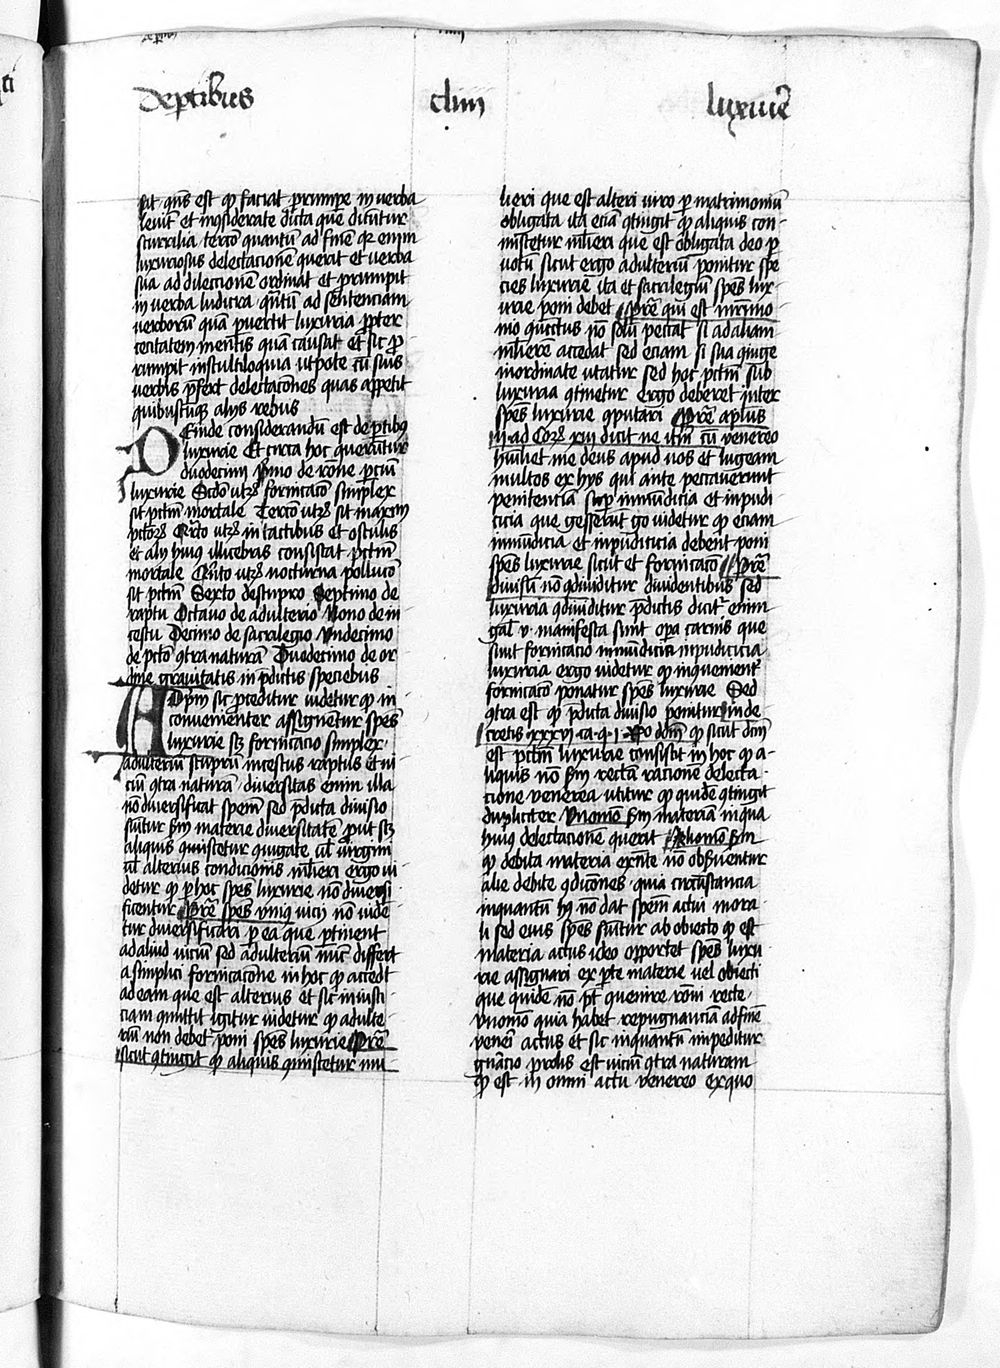 De ptibus cliiii luxurie
sit qñs est qp faciat prumpe in verba
leuit̃ et incõsiderate dicta que dicũtur
scurrilia tercõ quantũ ad finẽ qr enim
luxuriosus delectacionẽ querit et verba
sua ad dilectionẽ ordinat et prumpit
in verba ludicra quñtũ ad sentenciam
verborũ quã puertit luxuria ppter
cecitatem mentis quã causat Et sic p
rumpit in stultiloquia utpote cũ suis
verbis pfert delectacões quas appetit
quibuscũq alijs rebus
Deinde considerandũ est de ptibus
luxurie Et circa hoc querũtur
duodecim Pmo de rõne pciũ
luxurie Scdo utrũ fornicacõ simplex
sit pctm mortale Tercõ utrũ sit maxm
pctorũ Qrto utrũ in tactibus et osculis
et alijs huius illecebris consistat pctm
mortale Quito utrũ nocturna pollucõ
sit pctm Sexto de stupro Septimo de
raptu Octauo de adulterio Nono de in
cestu Decimo de sacrilegio Vndecimo
de pcto qtra naturã Duodecimo de or
dine grauitatis in pdictis speciebus
Ad pm sic pceditur videtur qp in
conuenienter assignentur spẽs
luxurie scz fornicacio simplex
adulteriũ stuprũ incestus raptus et vi
ciũ qtra naturã diuersitas enim illa
nõ diuersificat spem sed pdicta diuisio
sumitur sm materie diuersitatẽ put scz
aliquis qmiscetur qiugate ul virgini
ul alterius condicionis mlieri ergo vi
detur qp p hoc spẽs luxurie nõ diuersi
ficentur Pretẽ spẽs vniq vicij nõ vide
tur diuersificari p ea que ptinent
ad aliud viciũ sed adulteriũ nõ differt
a simplici fornicacõne in hoc qp accedit
ad eam que est alterius et sic iniusti
ciam qmittit igitur videtur qp adulte
riũ non debet poni spẽs luxurie Pretẽ
sicut qtingit qp aliquis qmiscetur mu
lieri que est alteri viro p matrimoniũ
obligata ita eciã qtingit qp aliquis con
miscetur mlieri que est obligata deo p
votũ sicut ergo adulteriũ ponitur spe
cies luxurie ita et sacrilegiũ spẽs lux
urie poni debet Pretẽ qui est mrimo
nio qiunctus nõ solũ peccat si ad aliam
mlierẽ accedat sed eciam si sua qiuge
inordinate utatur sed hoc pctm sub
luxuria qtinetur ergo deberet inter
spẽs luxurie qputari Pretẽ aplus
ii ad Corũ xii dicit ne itm cũ venero
humiliet me deus apud vos et lugeam
multos ex hijs qui ante peccauerunt
penitenciã sup inmũdicia et inpudi
cicia que gesserũt go videtur qp eciam
inmũdicia et inpudicicia debent poni
spẽs luxurie sicut et fornicacõ Pretẽ
diuisũ nõ qdiuiditur diuidentibus sed
luxuria qdiuiditur pdictis dicit̃ enim
gal v manifesta sunt opa carnis que
sunt fornicacio inmũdicia inpudicicia
luxuria ergo videtur qp inquenient̃
fornicacõ ponatur spẽs luxurie Sed
qtra est qp pdicta diuisio ponitur in de
cretis xxxvi ca q i Rõ ddm qp sicut dcm
est pctm luxurie consistit in hoc qp a
liquis nõ sm rectã racionẽ delecta
cione venerea utitur qp quidẽ qtingit
dupliciter Vnomõ sm materiã in qua
huius delectacionẽ querit Aliomõ sm
qp debita materia exñte nõ obseruentur
alie debite qdicõnes quia circũstancia
inquantũ hq nõ dat spem actui mora
li sed eius spẽs sumitur ab obiecto qp est
materia actus ideo opportet spẽs luxu
rie assignari ex pte materie vel obiecti
que quidẽ nõ pt quenire rõni recte
Vnomõ quia habet repugnanciã ad finẽ
venerei actus et sic inquantũ impeditur
gñacio prolis est viciũ qtra naturam
qp est in omni actu venereo ex quo